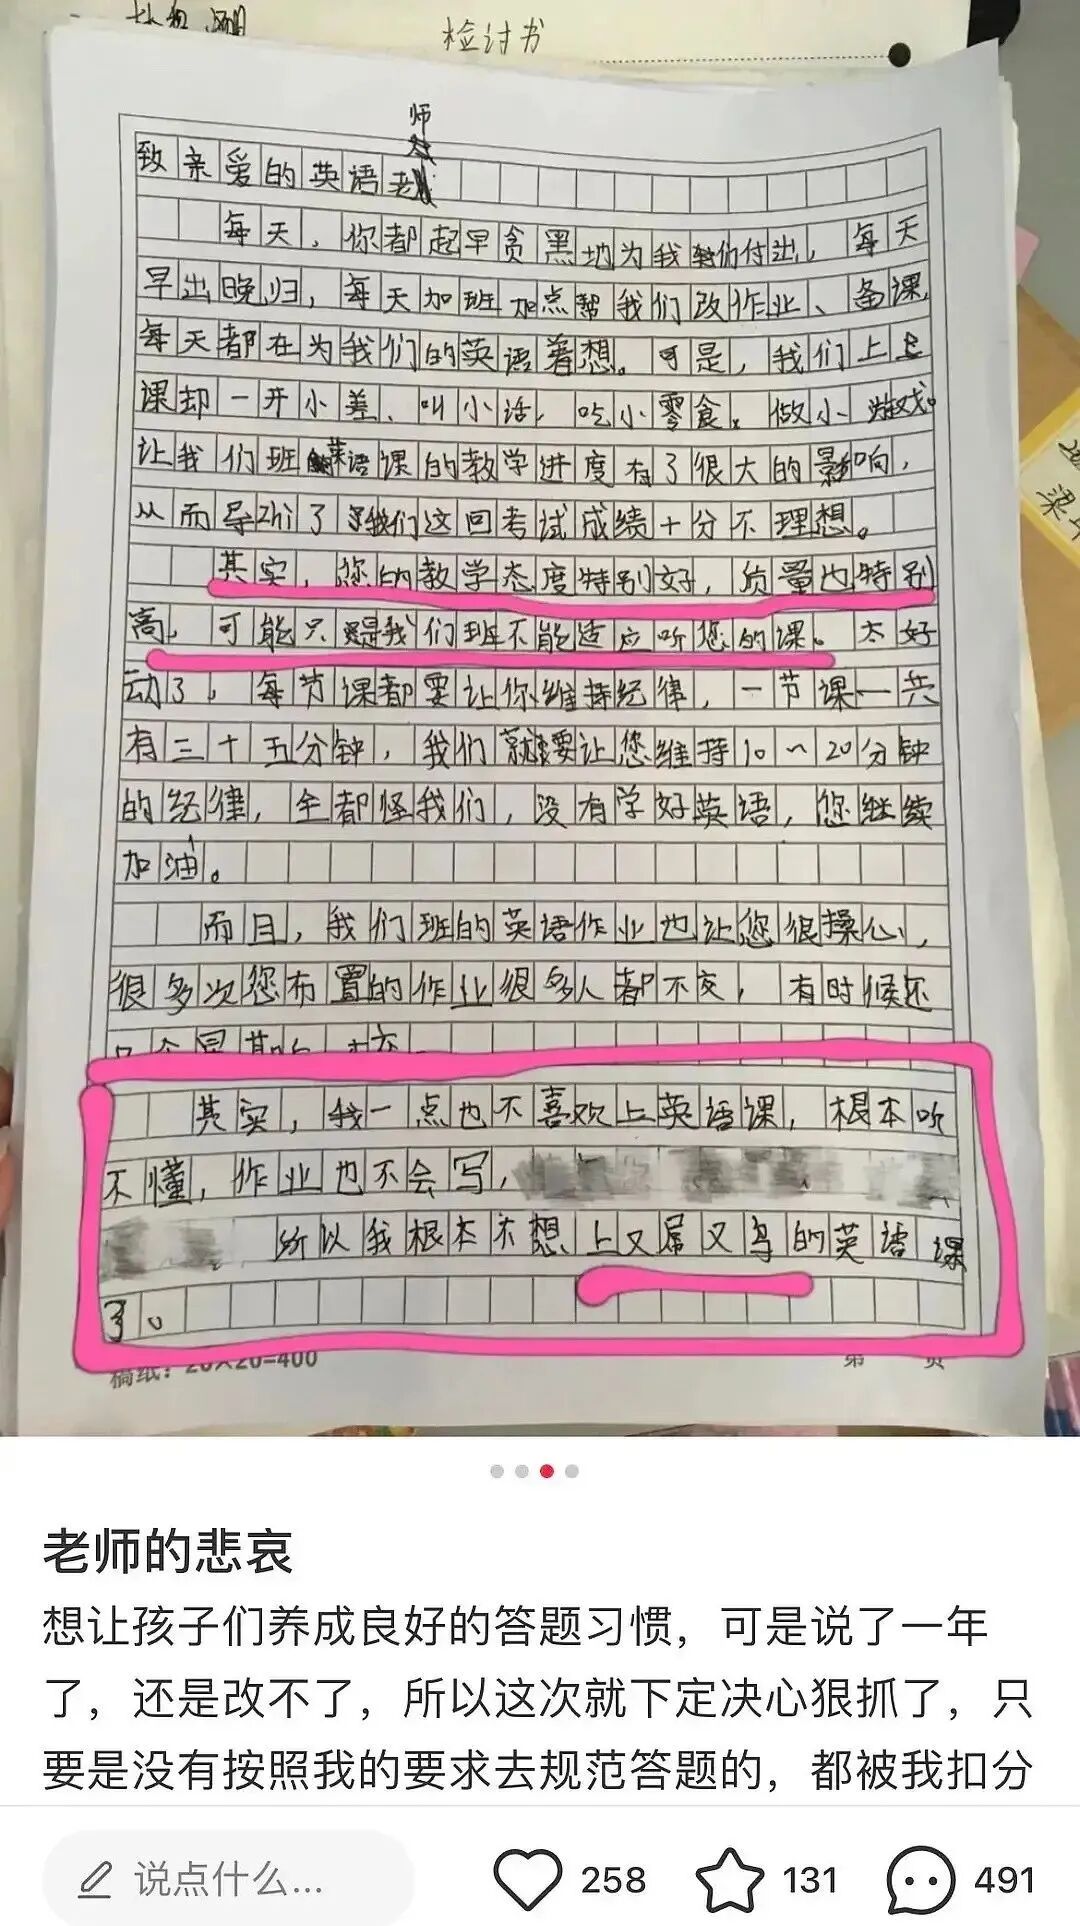 检讨书
师
致亲爱的英语老
每天，你都起早贪黑地为我们付出，每天
早出晚归，每天加班加点帮我们改作业、备课，
每天都在为我们的英语着想。可是，我们上
课却一开小差、叫小话，吃小零食。做小游戏。
让我们班英语课的教学进度有了很大的影响，
从而导zhi了我们这回考试成绩十分不理想。
其实，您的教学态度特别好，质量也特别
高，可能只是我们班不能适应听您的课。太好
动了。每节课都要让你维持纪律，一节课一共
有三十五分钟，我们就要让您维持10～20分钟
的纪律，全都怪我们，没有学好英语，您继续
加油。
而且，我们班的英语作业也让您很操心，
很多次您布置的作业很多人都不交，有时候还
其实，我一点也不喜欢上英语课，根本听
不懂，作业也不会写，
所以我根本不想上又屌又鸟的英语课
了。
稿纸：20×20=400 第 页
老师的悲哀
想让孩子们养成良好的答题习惯，可是说了一年
了，还是改不了，所以这次就下定决心狠抓了，只
要是没有按照我的要求去规范答题的，都被我扣分
说点什么... 258 131 491